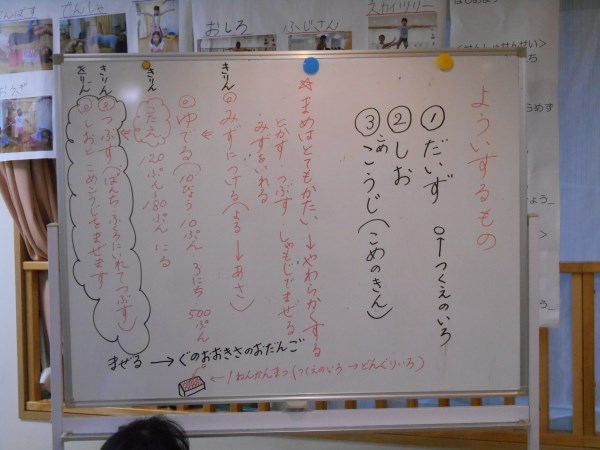 よういするもの
①だいず
↑つくえのいろ
②しお
③こめこうじ(こめのきん)
☆まめはとてもかたい→やわらかくする
とかす つぶす しゃもじでまぜる
みずをいれる
きりん
みずにつける(よる→あさ)
ゆでる(10びょう 10ぷん 3にち 500ぷん
きりん
こたえ
120ぷん 180ぷん にる
きりん
つぶす(ぽちぶくろにいれてつぶす)
きりん
しおと こめこうじをまぜます
まぜる→ぐのおおきさのおだんご
←1ねんかんまつ(つくえのいろ→どんぐりいろ)
でんしゃ
おしろ
ふじさん
スカイツリー